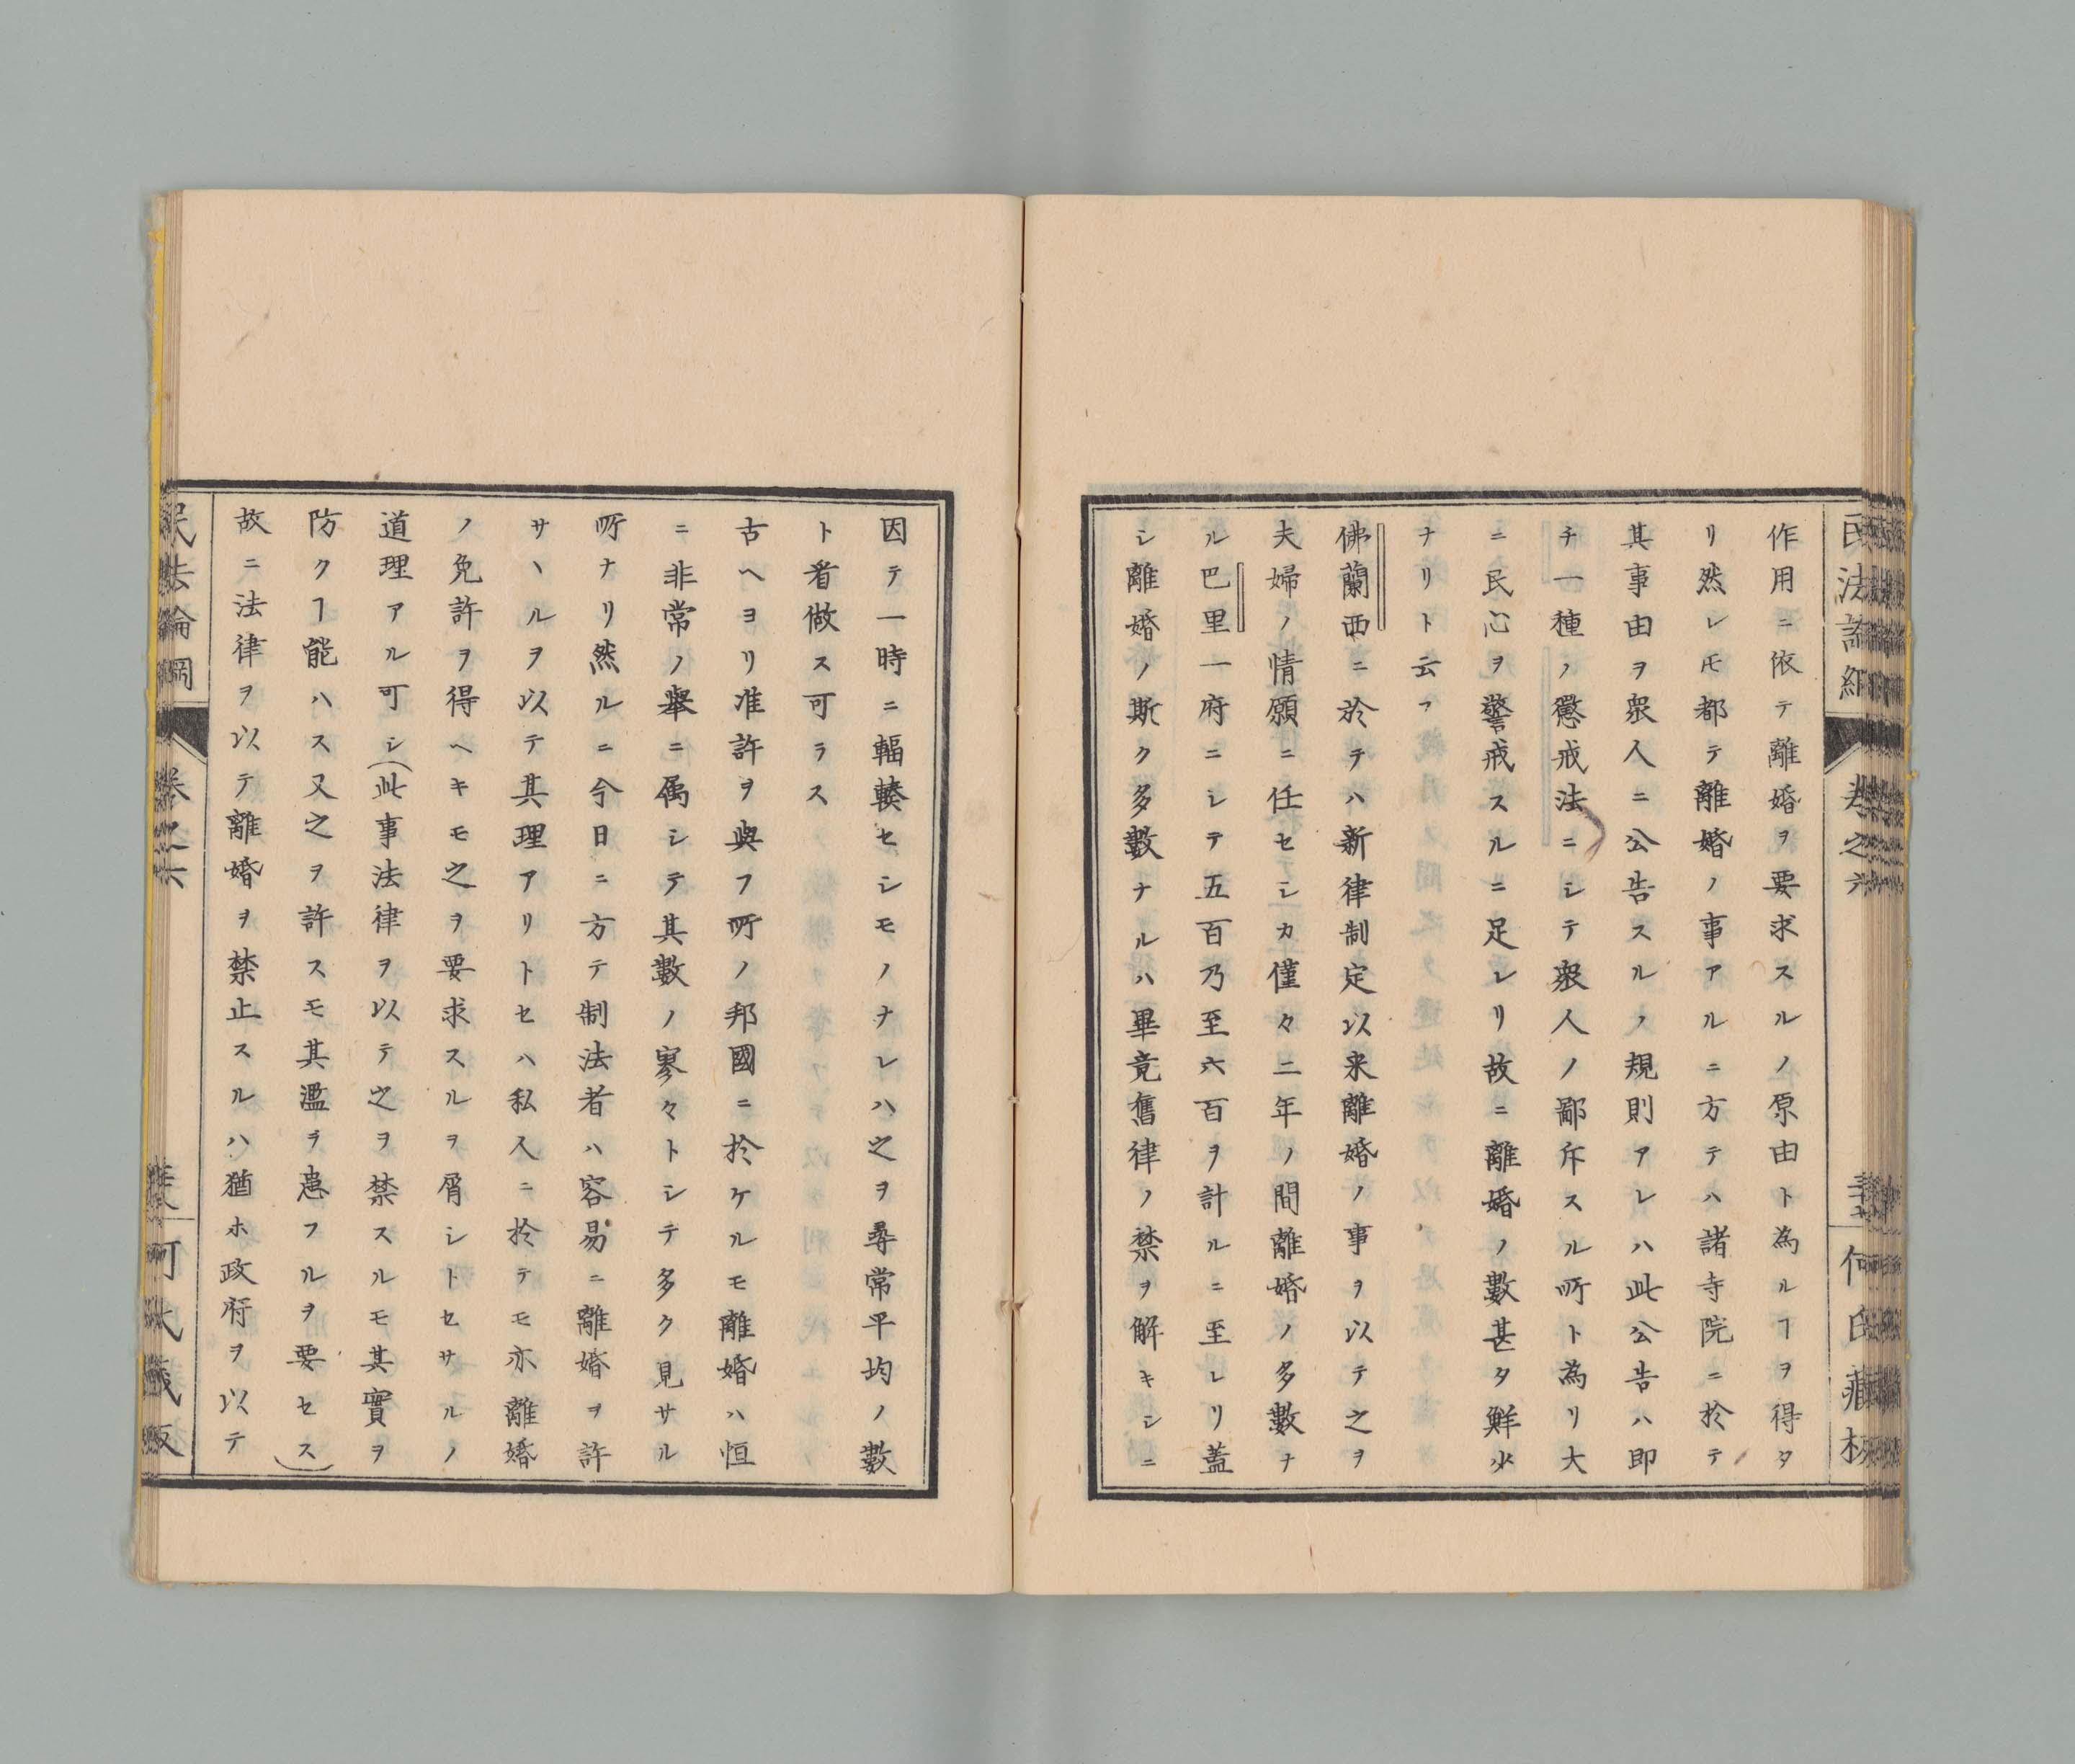 作用ニ依テ離婚ヲ要求スルノ原由ト為ルヿヲ得タ
リ然レ𪜈都テ離婚ノ事アルニ方テハ諸寺院ニ於テ
其事由ヲ衆人ニ公告スルノ規則アレハ此公告ハ即
チ一種ノ懲戒法ニシテ衆人ノ鄙斥スル所ト為リ大
ニ民心ヲ警戒スルニ足レリ故ニ離婚ノ數甚タ鮮少
ナリト云フ
佛蘭西ニ於テハ新律制定以来離婚ノ事ヲ以テ之ヲ
夫婦ノ情願ニ任セシカ僅々二年ノ間離婚ノ多數ナ
ル巴里一府ニシテ五百乃至六百ヲ計ルニ至レリ蓋
シ離婚ノ斯ク多數ナルハ畢竟舊律ノ禁ヲ解キシニ
因テ一時ニ輻輳セシモノナレハ之ヲ尋常平均ノ數
ト看做ス可ラス
古ヘヨリ准許ヲ與フ所ノ邦國ニ於ケルモ離婚ハ恒
ニ非常ノ舉ニ属シテ其數ノ寥々トシテ多ク見サル
所ナリ然ルニ今日ニ方テ制法者ハ容易ニ離婚ヲ許
サヽルヲ以テ其理アリトセハ私人ニ於テモ亦離婚
ノ免許ヲ得ヘキモ之ヲ要求スルヲ屑シトセサルノ
道理アル可シ（此事法律ヲ以テ之ヲ禁スルモ其實ヲ
防クヿ能ハス又之ヲ許スモ其濫ヲ患フルヲ要セス）
故ニ法律ヲ以テ離婚ヲ禁止スルハ猶ホ政府ヲ以テ
民法論綱 卷之六 何氏藏版